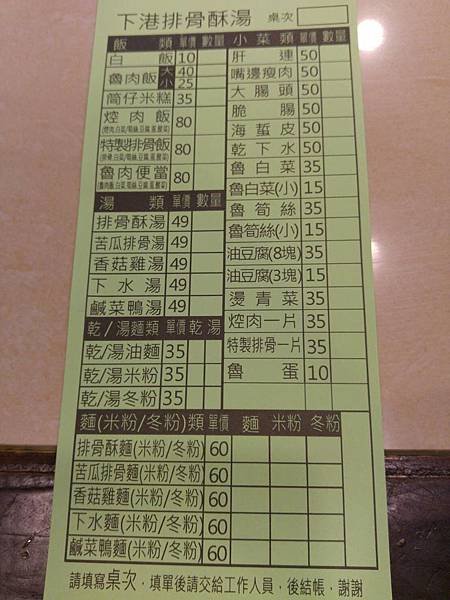 下港排骨酥湯 桌次
飯類 單價 數量
白飯 10
魯肉飯 大 40
小 25
筒仔米糕 35
焢肉飯 80
特製排骨飯 80
魯肉便當 80
湯類 單價 數量
排骨酥湯 49
苦瓜排骨湯 49
香菇雞湯 49
下水湯 49
鹹菜鴨湯 49
乾/湯麵類 單價 乾 湯
乾/湯油麵 35
乾/湯米粉 35
乾/湯冬粉 35
小菜類 單價 數量
肝連 50
嘴邊瘦肉 50
大腸頭 50
脆腸 50
海蜇皮 50
乾下水 50
魯白菜 35
魯白菜(小) 15
魯筍絲 35
魯筍絲(小) 15
油豆腐(8塊) 35
油豆腐(3塊) 15
燙青菜 35
焢肉一片 35
特製排骨一片 35
魯蛋 10
麵(米粉/冬粉)類 單價 麵 米粉 冬粉
排骨酥麵(米粉/冬粉) 60
苦瓜排骨麵(米粉/冬粉) 60
香菇雞麵(米粉/冬粉) 60
下水麵(米粉/冬粉) 60
鹹菜鴨麵(米粉/冬粉) 60
請填寫桌次，填單後請交給工作人員，後結帳，謝謝